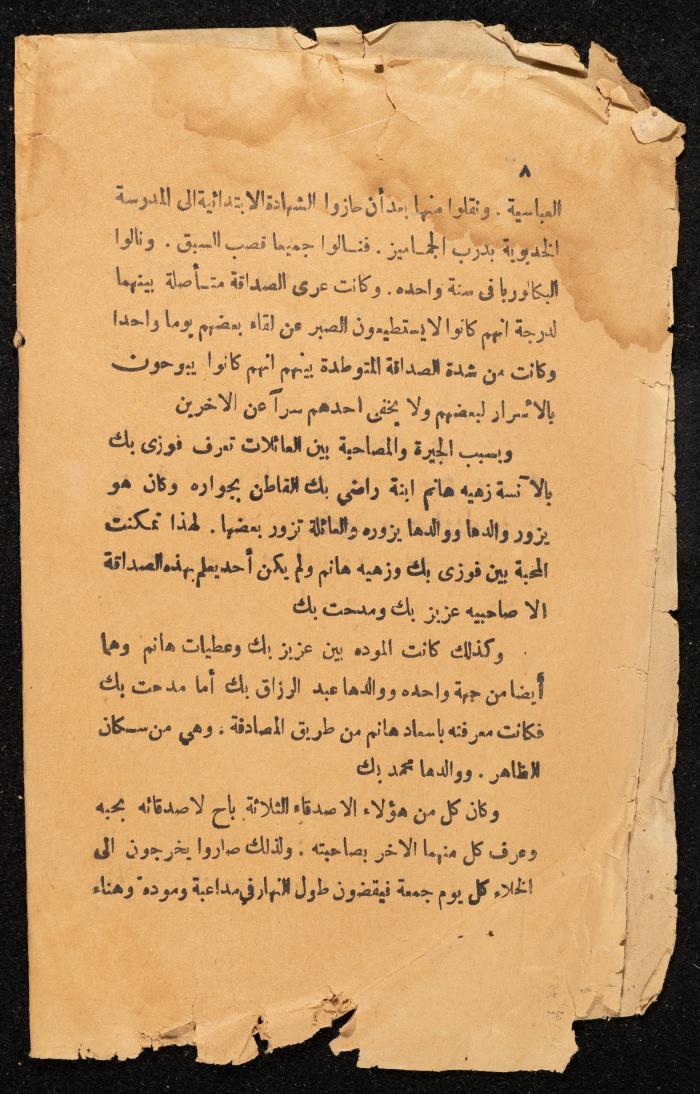 ٨
العباسية . ونقلوا منها بعد أن حازوا الشهادة الابتدائية الى المدرسة
الخديوية بدرب الجماميز . فنالوا جميعا قصب السبق . ونالوا
البكالوريا فى سنة واحده . وكانت عرى الصداقة متأصلة بينهما
لدرجة انهم كانوا لا يستطيعون الصبر عن لقاء بعضهم يوما واحدا
وكانت من شدة الصداقة المتوطدة بينهم انهم كانوا يبوحون
بالاسرار لبعضهم ولا يخفى احدهم سرآ عن الاخرين
وبسبب الجيرة والمصاحبة بين العائلات تعرف فوزى بك
بالآنسة زهيه هانم ابنة راضي بك القاطن بجواره وكان هو
يزور والدها ووالدها يزوره والعائلة تزور بعضها . لهذا تمكنت
المحبة بين فوزى بك وزهيه هانم ولم يكن أحد يعلم بهذه الصداقة
الا صاحبيه عزيز بك ومدحت بك
وكذلك كانت الموده بين عزيز بك وعطيات هانم وهما
أيضا من جهة واحده ووالدها عبد الرزاق بك أما مدحت بك
فكانت معرفته باسعاد هانم من طريق المصادفة ، وهي من سكان
الظاهر . ووالدها محمد بك
وكان كل من هؤلاء الاصدقاء الثلاثة باح لاصدقائه بحبه
وعرف كل منهما الاخر بصاحبته . ولذلك صاروا يخرجون الى
الخلاء كل يوم جمعة فيقضون طول النهار في مداعبة ومودة وهناء